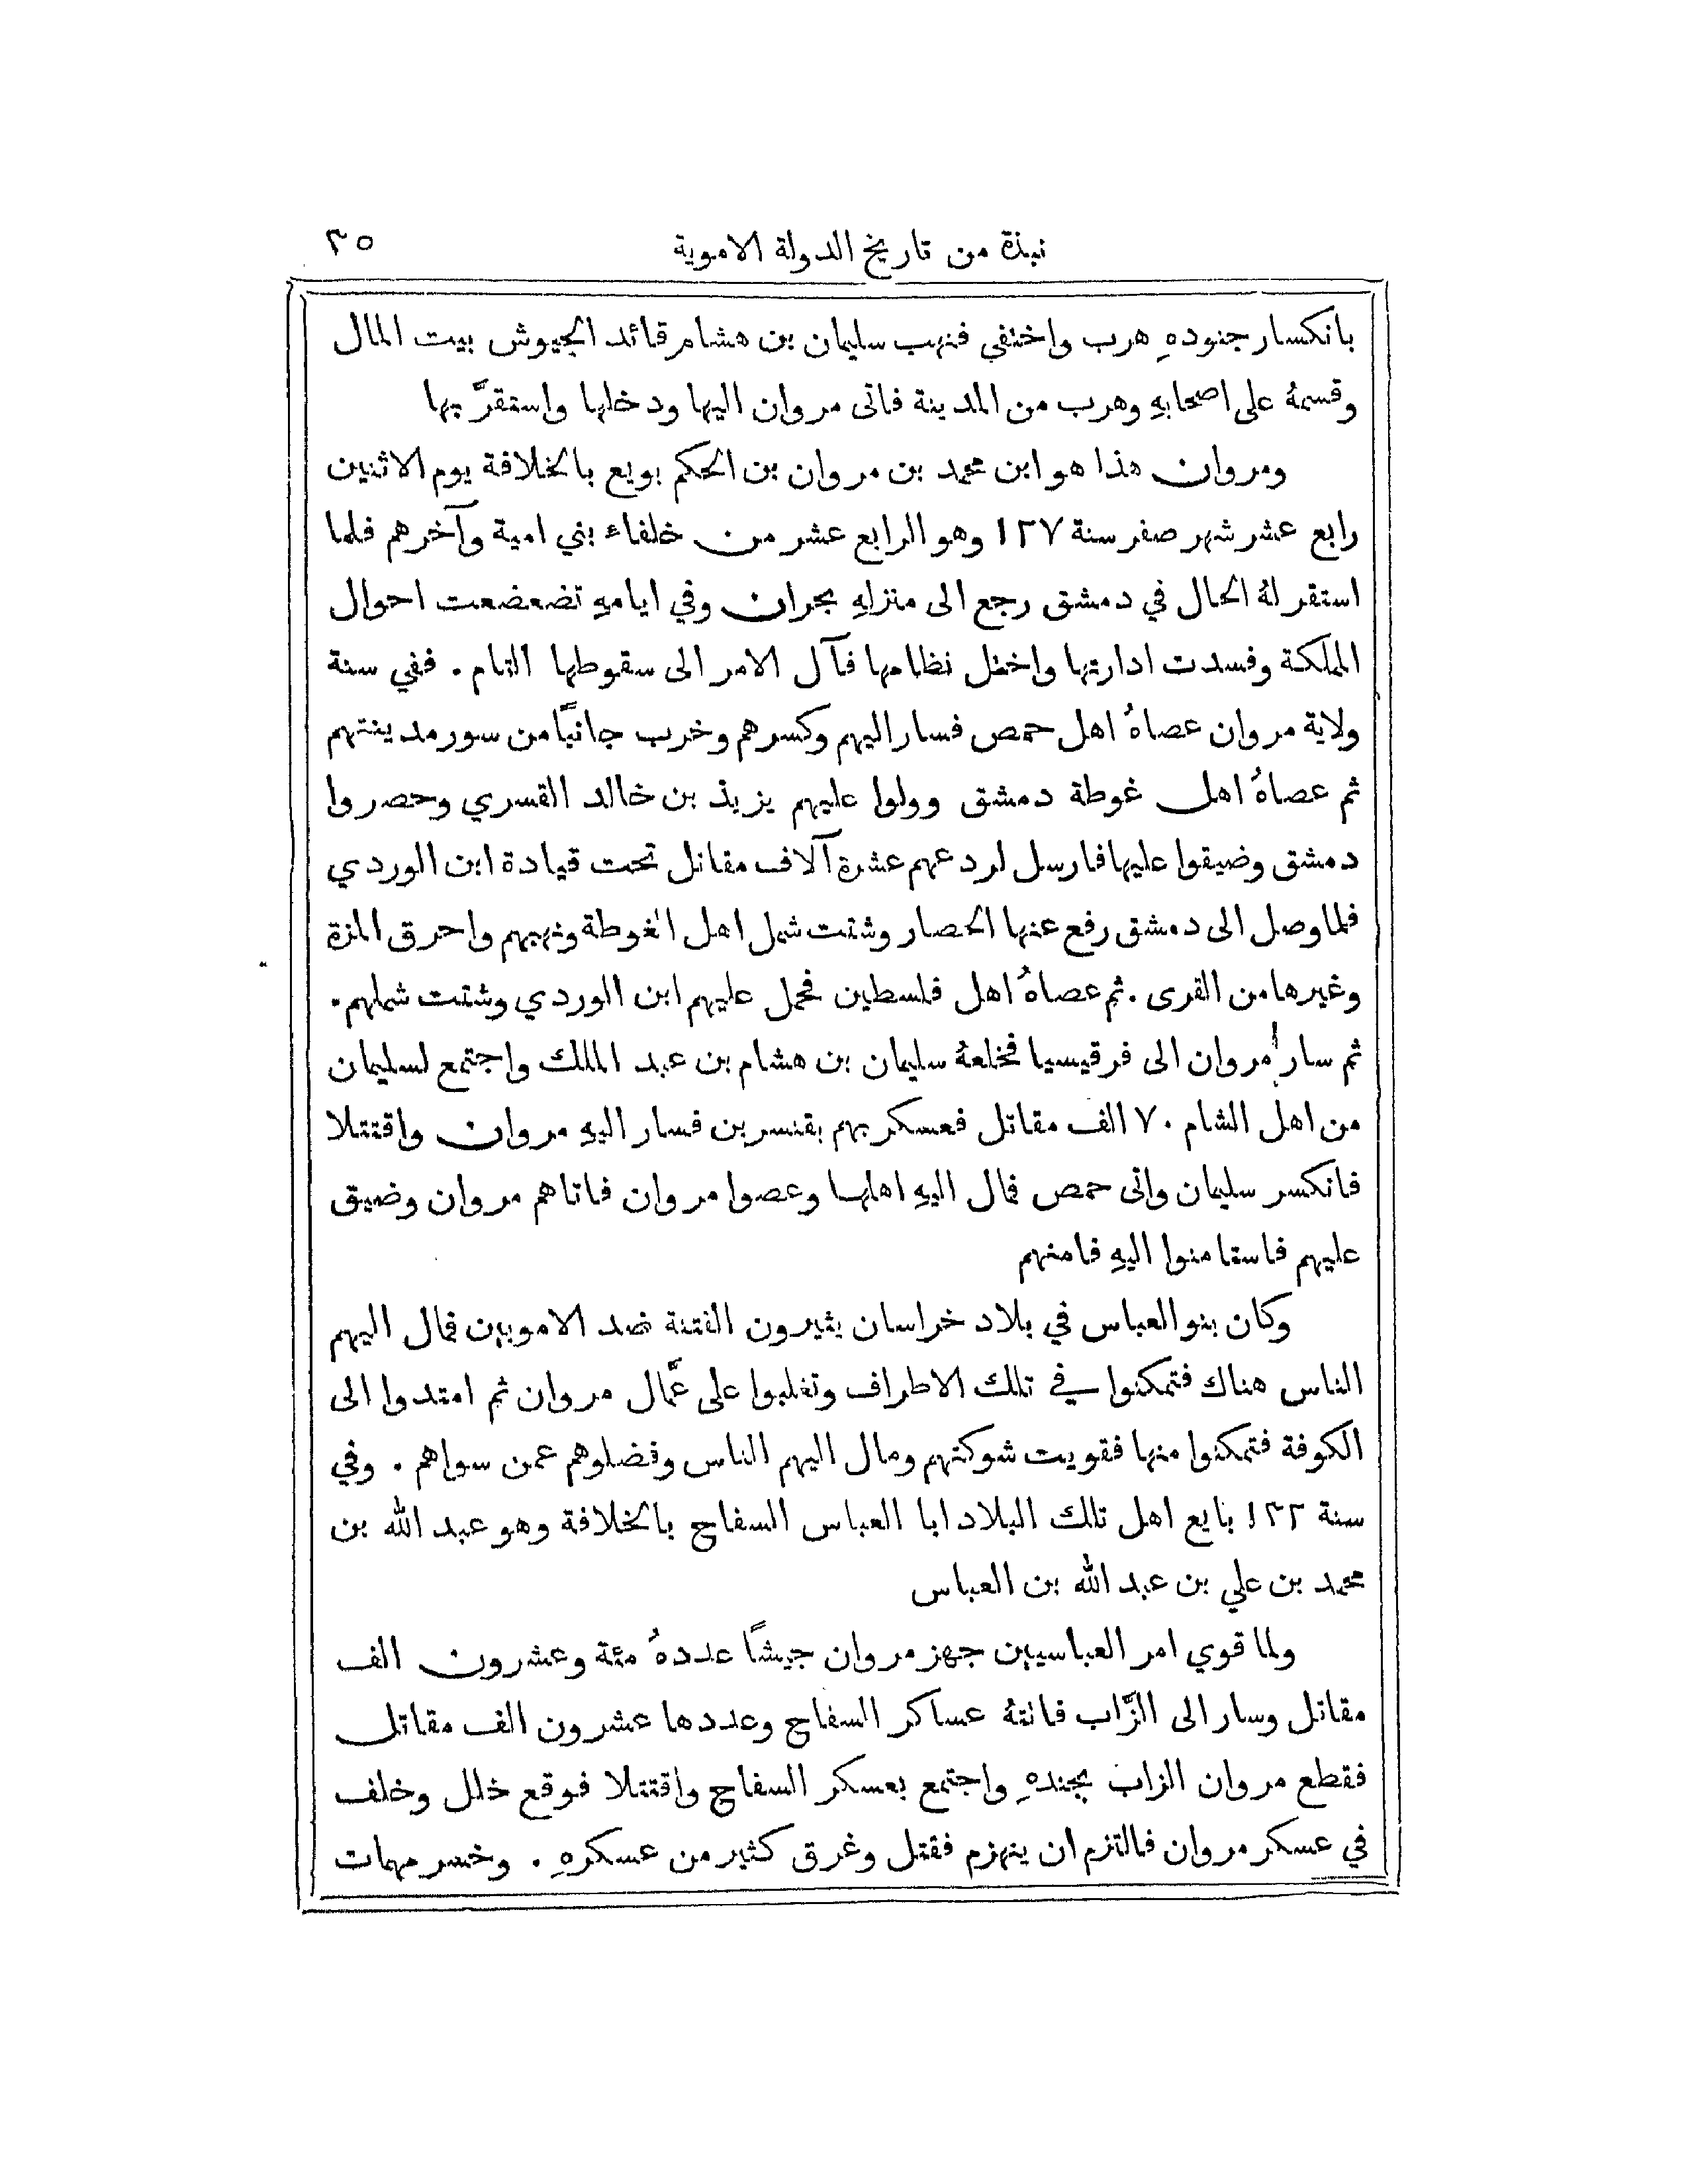 نبذة من تاريخ الدولة الاموية ٣٥
بانكسار جنودهِ هرب واختفي فنهب سليمان بن هشام قائد الجيوش بيت المال
وقسمهُ على اصحابهِ وهرب من المدينة فاتى مروان اليها ودخلها واستقرَّ بها
ومروان هذا هو ابن محمد بن مروان بن الحكم بويع بالخلافة يوم الاثنين
رابع عشر شهر صفر سنة ١٢٧ وهو الرابع عشر من خلفاء بني امية وآخرهم فلما
استقر لهُ الحال في دمشق رجع الى منزلهِ بحران وفي ايامهِ تضعضعت احوال
المملكة وفسدت ادارتها واختل نظامها فآل الامر الى سقوطها التام. ففي سنة
ولاية مروان عصاهُ اهل حمص فسار اليهم وكسرهم وخرب جانبًا من سور مدينتهم
ثم عصاهُ اهل غوطة دمشق وولوا عليهم يزيد بن خالد القسري وحصروا
دمشق وضيقوا عليها فارسل لردعهم عشرة آلاف مقاتل تحت قيادة ابن الوردي
فلما وصل الى دمشق رفع عنها الحصار وشتت شمل اهل الغوطة ونهبهم واحرق المزة
وغيرها من القرى. ثم عصاهُ اهل فلسطين فحمل عليهم ابن الوردي وشتت شملهم.
ثم سار مروان الى فرقيسيا فخلعهُ سليمان بن هشام بن عبد الملك واجتمع لسليمان
من اهل الشام ٧٠ الف مقاتل فعسكر بهم بقنسرين فسار اليهِ مروان واقتتلا
فانكسر سليمان واتى حمص فمال اليهِ اهلها وعصوا مروان فاتاهم مروان وضيق
عليهم فاستامنوا اليهِ فامنهم
وكان بنو العباس في بلاد خراسان يثيرون الفتنة ضد الامويين فمال اليهم
الناس هناك فتمكنوا في تلك الاطراف وتغلبوا على عمَّال مروان ثم امتدوا الى
الكوفة فتمكنوا منها فقويت شوكتهم ومال اليهم الناس وفضلوهم عمن سواهم. وفي
سنة ١٣٢ بايع اهل تلك البلاد ابا العباس السفاح بالخلافة وهو عبد الله بن
محمد بن علي بن عبد الله بن العباس
ولما قوي امر العباسيين جهز مروان جيشًا عددهُ مئة وعشرون الف
مقاتل وسار الى الزَّاب فاتتهُ عساكر السفاح وعددها عشرون الف مقاتل
فقطع مروان الزاب بجندهِ واجتمع بعسكر السفاح واقتتلا فوقع خلل وخلف
في عسكر مروان فالتزم ان ينهزم فقتل وغرق كثير من عسكرهِ. وخسر مهمات